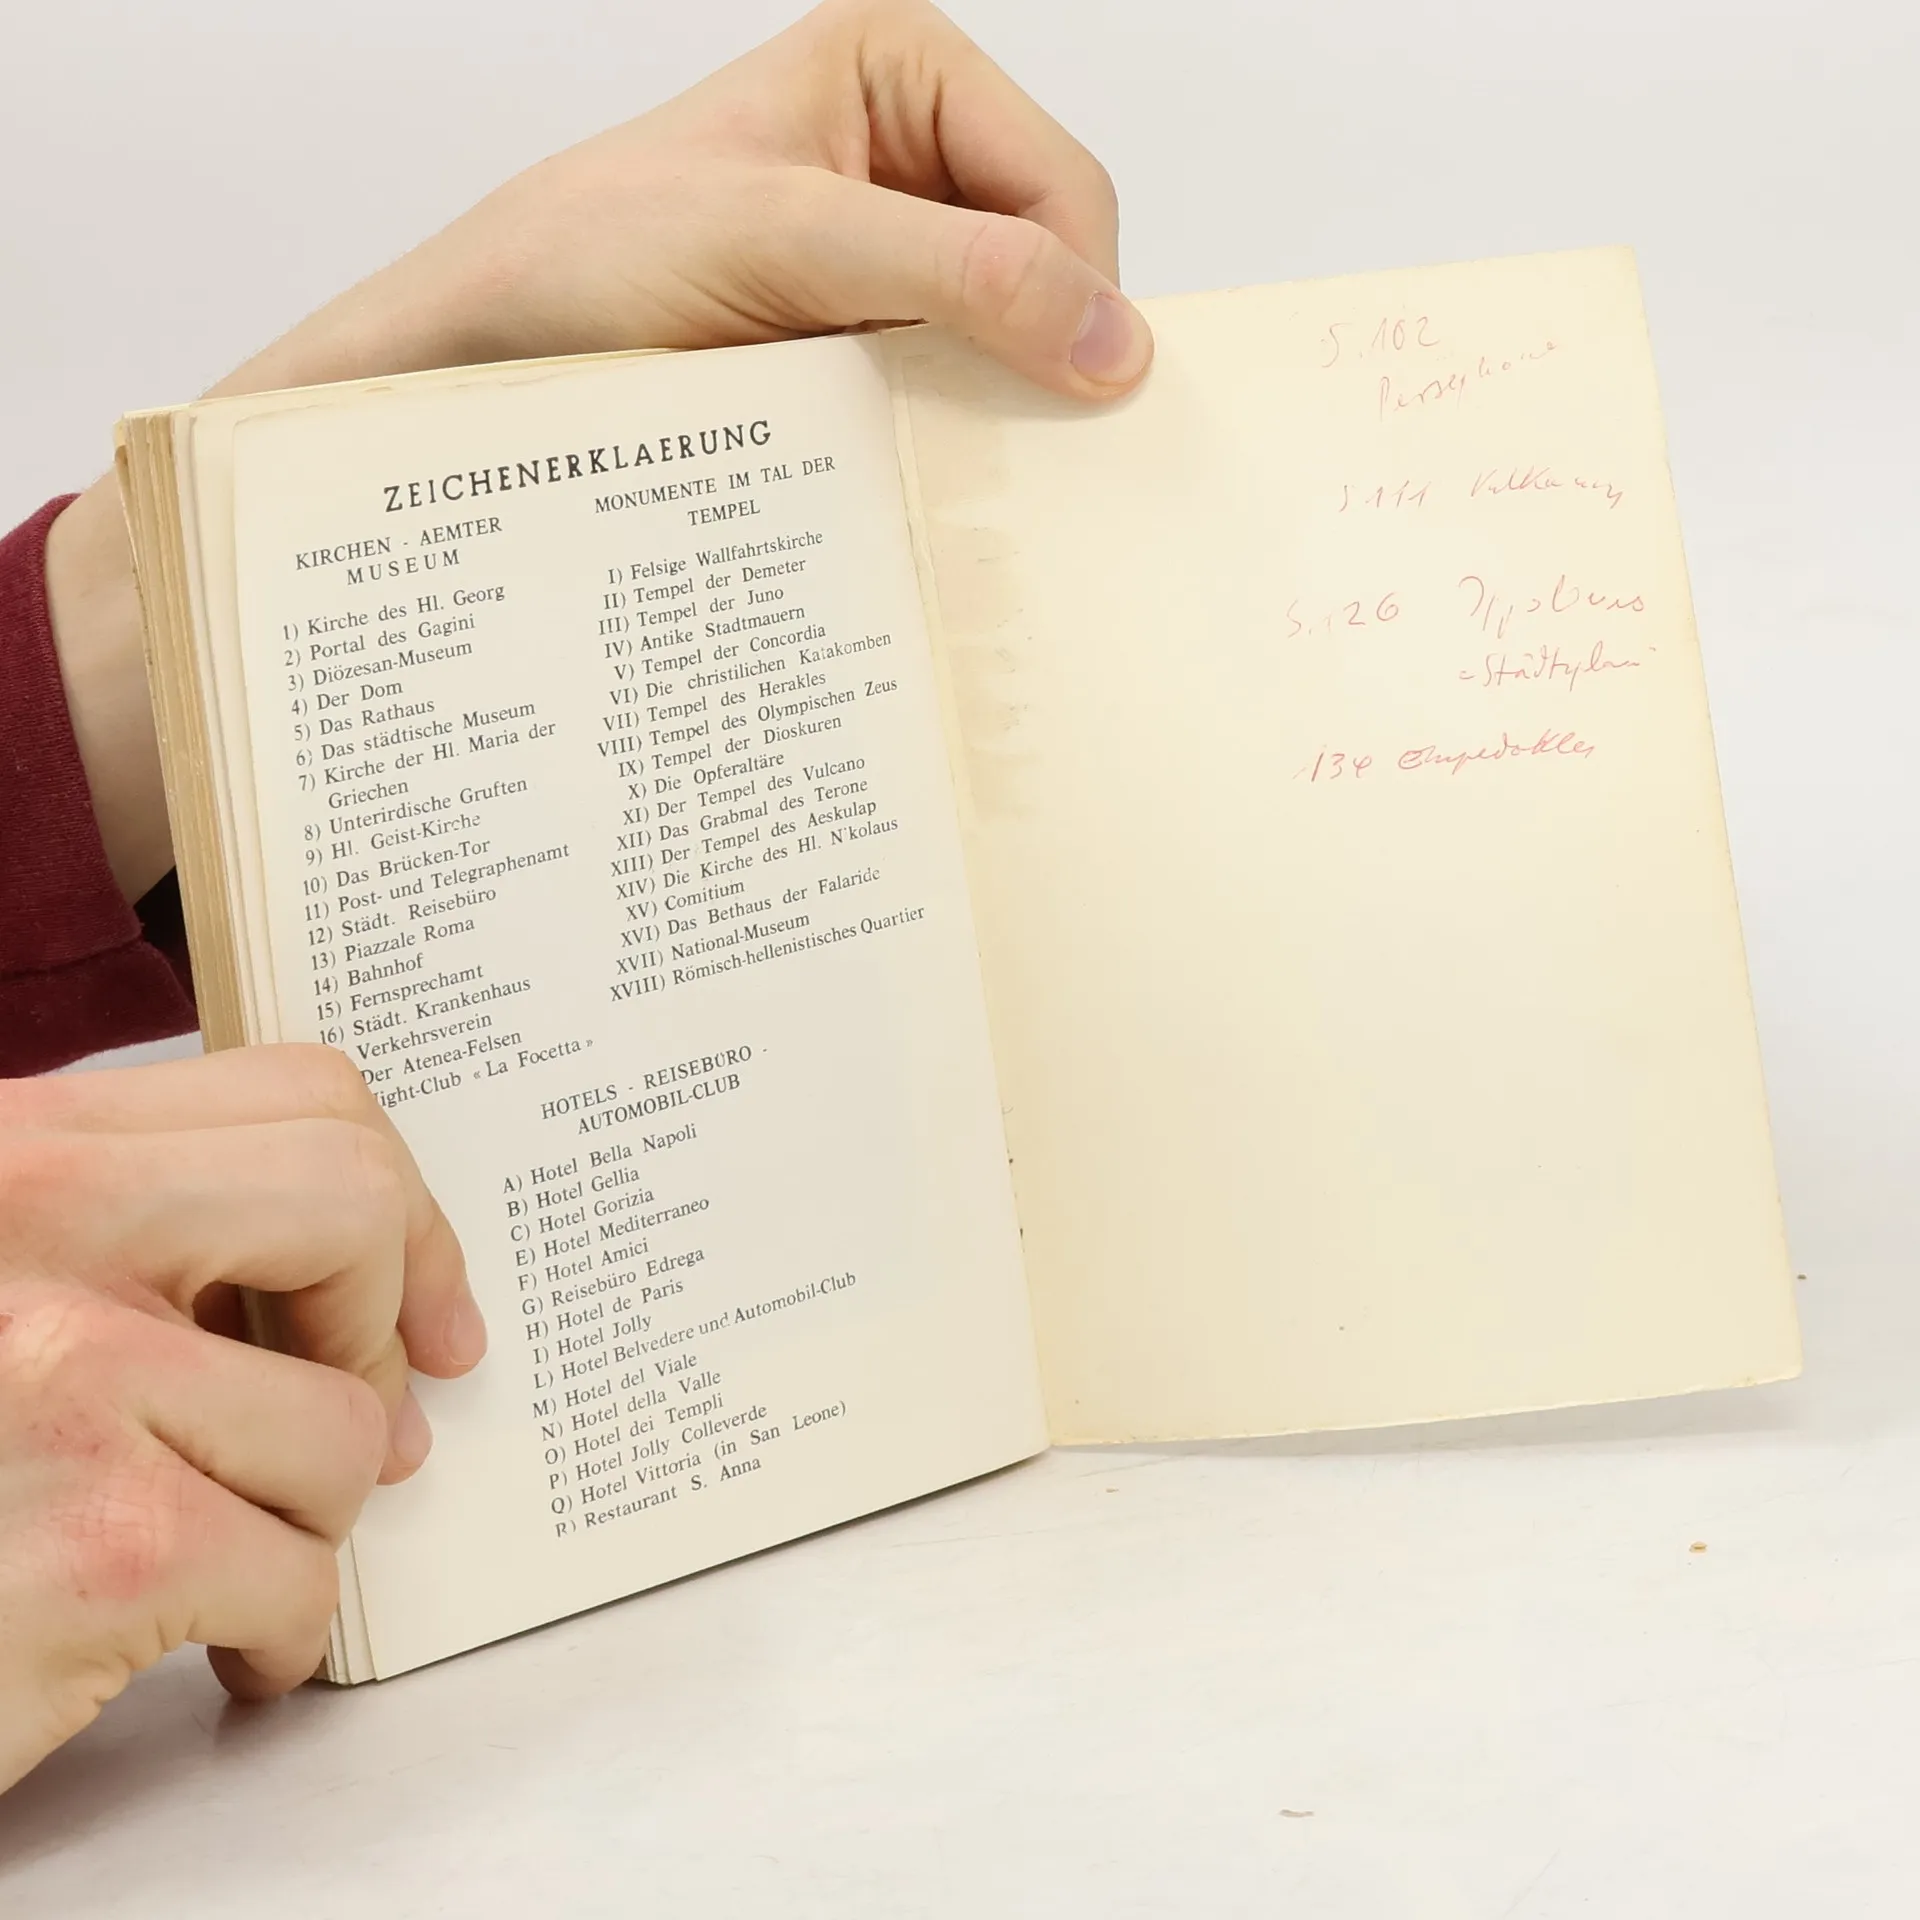 ZEICHENERKLAERUNG
KIRCHEN - AEMTER
MUSEUM
1) Kirche des Hl. Georg
2) Portal des Gagini
3) Diözesan-Museum
4) Der Dom
5) Das Rathaus
6) Das städtische Museum
7) Kirche der Hl. Maria der
Griechen
8) Unterirdische Gruften
9) Hl. Geist-Kirche
10) Das Brücken-Tor
11) Post- und Telegraphenamt
12) Städt. Reisebüro
13) Piazzale Roma
14) Bahnhof
15) Fernsprechamt
16) Städt. Krankenhaus
Verkehrsverein
Der Atenea-Felsen
ight-Club « La Focetta »
MONUMENTE IM TAL DER
TEMPEL
I) Felsige Wallfahrtskirche
II) Tempel der Demeter
III) Tempel der Juno
IV) Antike Stadtmauern
V) Tempel der Concordia
VI) Die christilichen Katakomben
VII) Tempel des Herakles
VIII) Tempel des Olympischen Zeus
IX) Tempel der Dioskuren
X) Die Opferaltäre
XI) Der Tempel des Vulcano
XII) Das Grabmal des Terone
XIII) Der Tempel des Aeskulap
XIV) Die Kirche des Hl. Nikolaus
XV) Comitium
XVI) Das Bethaus der Falaride
XVII) National-Museum
XVIII) Römisch-hellenistisches Quartier
HOTELS - REISEBÜRO -
AUTOMOBIL-CLUB
A) Hotel Bella Napoli
B) Hotel Gellia
C) Hotel Gorizia
E) Hotel Mediterraneo
F) Hotel Amici
G) Reisebüro Edrega
H) Hotel de Paris
I) Hotel Jolly
L) Hotel Belvedere und Automobil-Club
M) Hotel del Viale
N) Hotel della Valle
O) Hotel dei Templi
P) Hotel Jolly Colleverde
Q) Hotel Vittoria (in San Leone)
R) Restaurant S. Anna
S. 102
Persephone
S 111
S. 126
134 Empedokles